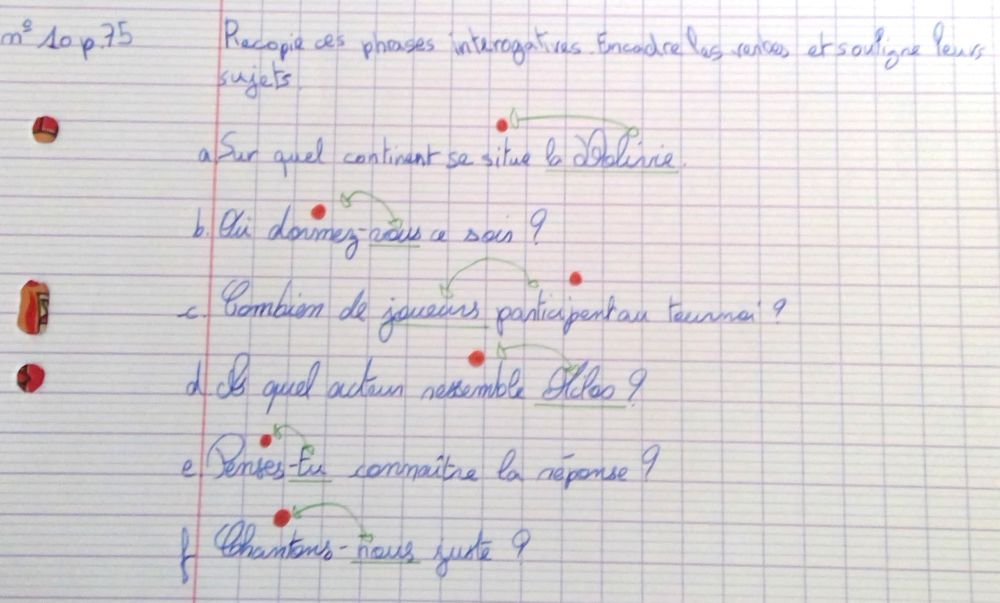 n° 10 p.75 Recopie ces phrases interogatives. Encadre les verbes et souligne leurs
sujets.
a. Sur quel continent se situe la Bolivie.
b. Où dormez-vous ce soir ?
c. Combien de joueurs participent au tournoi ?
d. A quel acteur ressemble Cléo ?
e. Penses-tu connaître la réponse ?
f. Chantons-nous juste ?